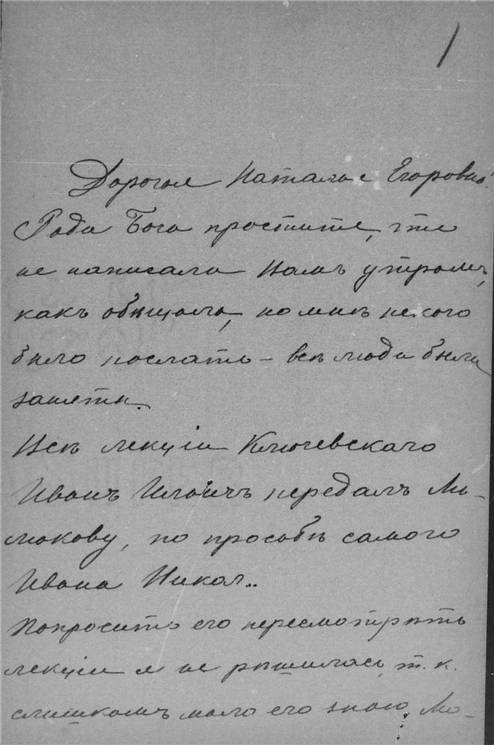 1
Дорогая Наталья Егоровна!
Ради Бога простите, что
не написала Вамъ утромъ,
какъ обѣщала, но мнѣ некого
было послать – всѣ люди были
заняты.
Всѣ лекціи Ключевскаго
Иванъ Ильичъ передалъ Ми-
люкову, по просьбѣ самого
Ивана Никол..
Попросить его пересмотрѣть
лекціи я не рѣшилась, т.к.
слишкомъ мало его знаю.